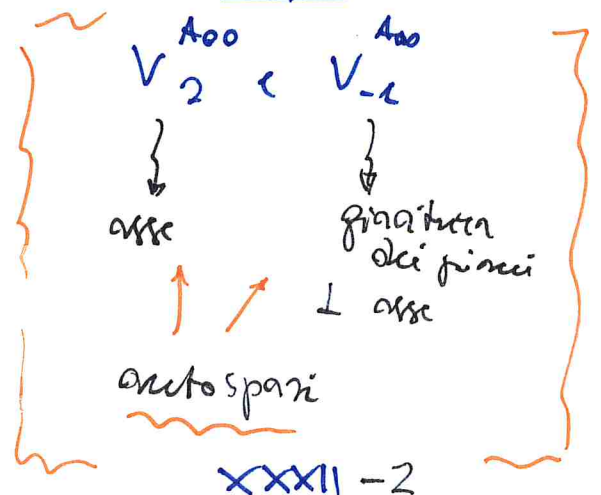 V₂^{A₀₀} e V₋₁^{A₀₀}
asse giacitura
dei piani
⊥ asse
autospazi
XXXII - 2